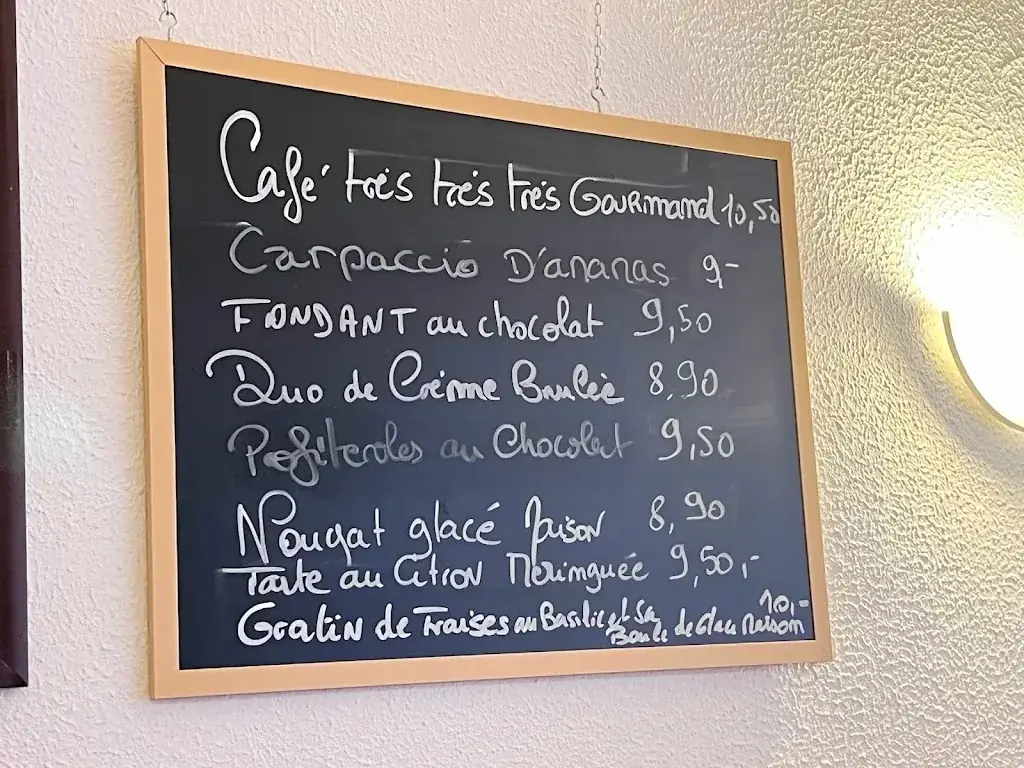 Café très très très Gourmand 10,50
Carpaccio D'ananas 9,-
FONDANT au chocolat 9,50
Duo de Crème Brulée 8,90
Profiteroles au Chocolat 9,50
Nougat glacé Maison 8,90
Tarte au Citron Meringuée 9,50,-
Gratin de Fraises au Basilic et Sa
Boule de Glace Maison 10,-